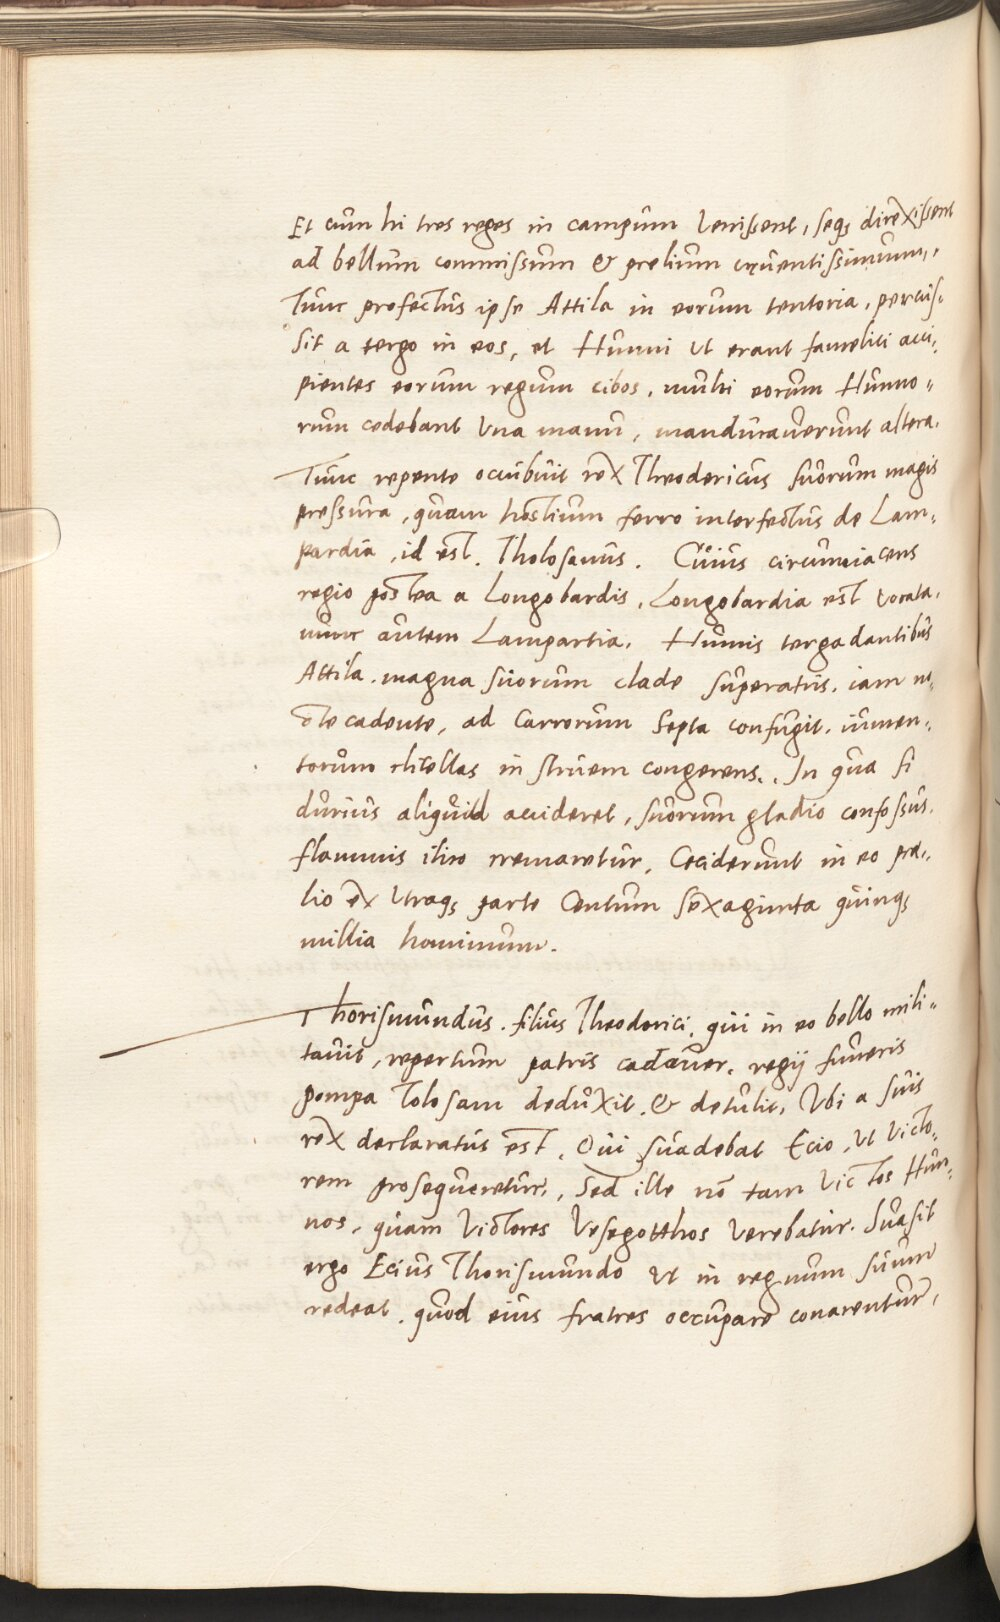 Et cum hi tres reges in campum Venissent, seq; direxissent
ad bellum commissum & prelium cruentissimum,,
Tunc profectus ipse Attila in eorum tentoria, percus,
sit a tergo in eos, et Hunni ut erant fameliti acci,
pientes eorum regum cibos, multi eorum Hunno,,
rum cedebant Una manu, manducauerunt altera.
Tunc repente occubuit rex Theodericus suorum magis
pressura, quam hostium ferro interfectus de Lam,
pardia, id est. Tholosanus. Cuius circumiacens
regio postea a Longobardis, Longobardia est vocata,
nunc autem Lampartia. Hunnis terga dantibus
Attila magna suorum clade superatus, iam no,
cte cadente, ad Carrorum Septa confugit, iumen,
torum clitellas in struem congerens,. In qua si
durius aliquid accideret, suorum gladio confossus,
flammis ilico cremaretur, Ceciderunt in eo pre,,
lio ex Utraq; parte Centum sexaginta quinq;
millia hominum.
Thorismundus. filius Theoderici, qui in eo bello mili,,
tauit, repertum patris cadauer, regij funeris
pompa Tolosam deduxit, & detulit, Ubi a suis
rex declaratus est, Qui suadebat Ecio, Ut Victo,
rem prosequeretur,, Sed ille nõ tam Victos Hun,
nos, quam Victores Vesegotthos Verebatur. Suasit
ergo Ecius Thorismundo Ut in regnum suum
redeat, quod eius fratres occupare conarentur,